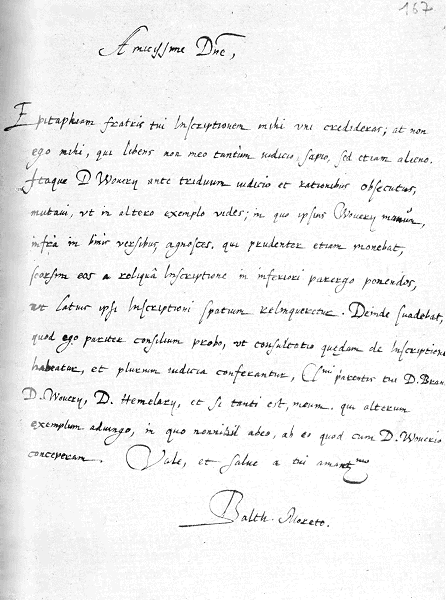 167
Amicissime Dne,
Epitaphium fratris tui Inscriptionem mihi uni credideras; at non
ego mihi, qui libens non meo tantùm iudicio sapio, sed etiam alieno.
Itaque D Wouery ante triduum iudicio et rationibus obsecutus,
mutaui, vt in altero exemplo vides; in quo ipsius Wouery manum,
infrà in binis versibus agnosces, qui prudenter etiam monebat,
seorsim eos a reliquâ Inscriptione in inferiori parergo ponendos,
ut latius ipsi Inscriptioni spatium relinqueretur. Deinde suadebat,
quod ego pariter consilium probo, vt consultatio quędam de Inscriptione
habeatur, et plurium iudicia conferantur, parentis tui D. Brant
D. Wouery, D. Hemelary, et si tanti est, meum. qui alterum
exemplum adiungo, in quo nonnihil abeo, ab eo quod cum D. Wouerio
conceperam. Vale, et salue a tui amantmo
Balth. Moreto.